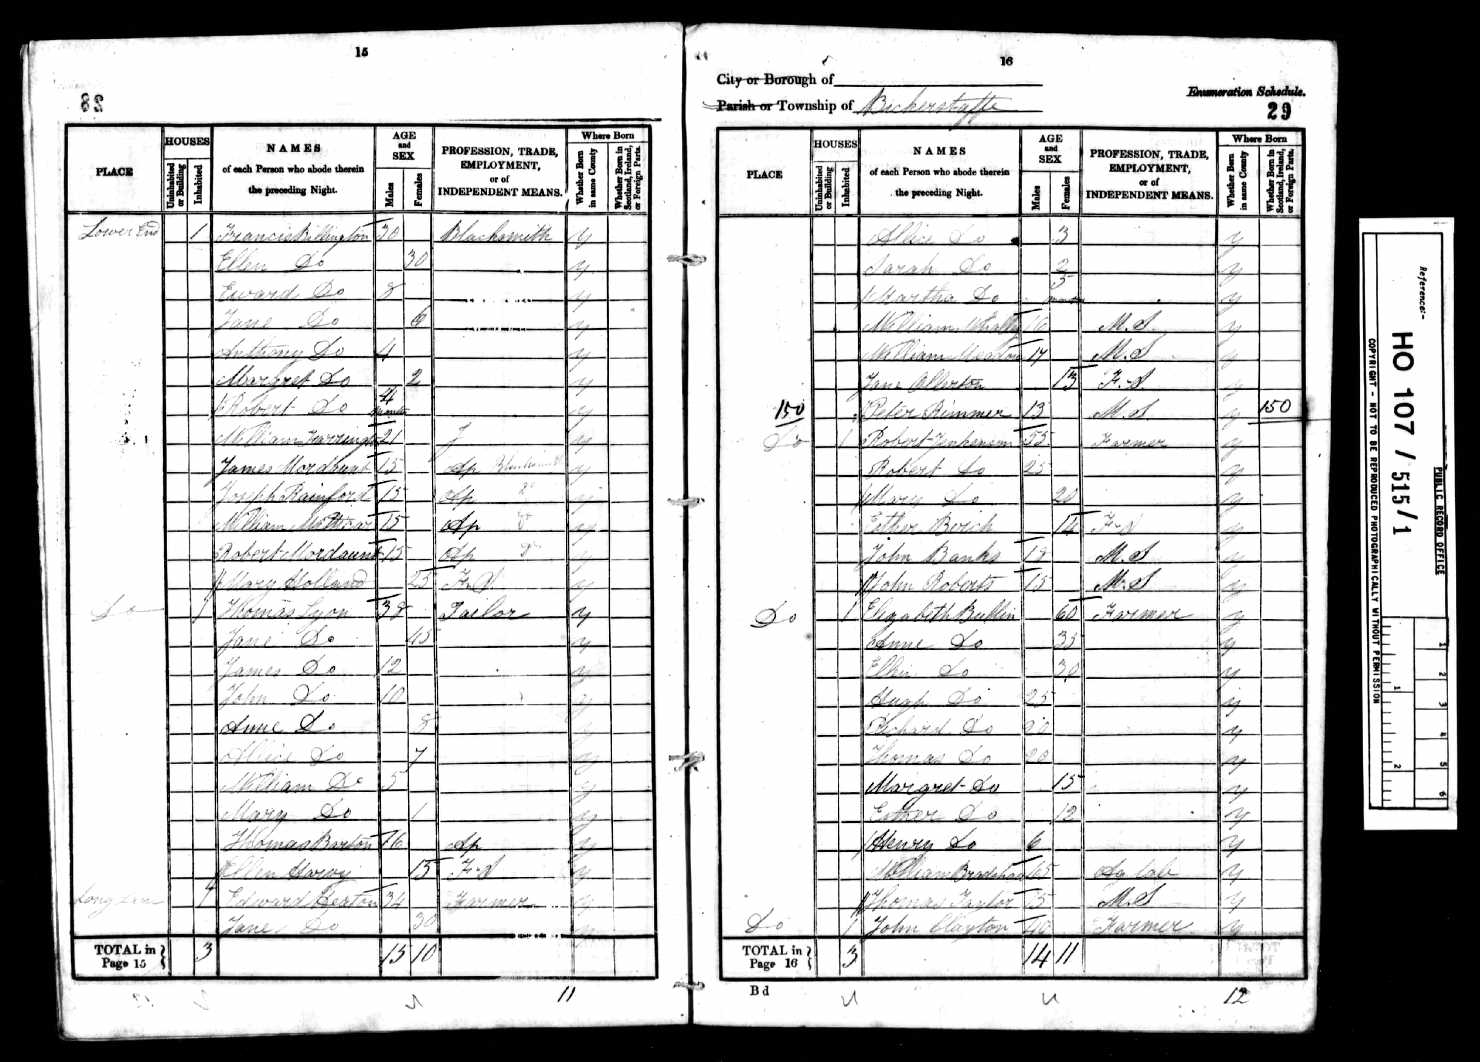 15
28
PLACE
HOUSES
Uninhabited or Building
Inhabited
NAMES
of each Person who abode therein
the preceding Night.
AGE
and
SEX
Males
Females
PROFESSION, TRADE,
EMPLOYMENT,
or of
INDEPENDENT MEANS.
Where Born
Whether Born in same County
Whether Born in Scotland, Ireland, or Foreign Parts.
Lower End 1 Francis Billington 30 Blacksmith y
Ellen Do 30 y
Eward Do 8 y
Jane Do 6 y
Anthony Do 4 y
Margret Do 2 y
Robert Do 4 months y
William 21 J y
James Mordaunt 15 Ap y
Joseph Rainford 15 Ap Do y
William 15 Ap Do y
Robert Mordaunt 15 Ap Do y
Mary Holland 25 F.S. y
Do 1 Thomas Lyon 38 Taelor y
Jane Do 45 y
James Do 12 y
John Do 10 y
Anne Do 8 y
Allice Do 7 y
William Do 5 y
Mary Do 1 y
Thomas Barton 16 Ap y
Ellen Harvy 15 F.S y
Long Lane 1 Edward Heaton 34 Farmer y
Jane Do 30 y
TOTAL in
Page 15
3 15 10
11
16
City or Borough of
Parish or Township of Bickerstaffe
Enumeration Schedule.
29
PLACE
HOUSES
Uninhabited or Building
Inhabited
NAMES
of each Person who abode therein
the preceding Night.
AGE
and
SEX
Males
Females
PROFESSION, TRADE,
EMPLOYMENT,
or of
INDEPENDENT MEANS.
Where Born
Whether Born in same County
Whether Born in Scotland, Ireland, or Foreign Parts.
Allice Do 3 y
Sarah Do 2 y
Martha Do 5 months y
William M.S. y
William Heaton M.S. y
Jane Ollerton 13 F.S. y
150 Peter Rimmer 13 M.S y 150
Do 1 Robert Jenkenson 55 Farmer y
Robert Do 25 y
Mary Do 20 y
Esther Berch 14 F.S y
John Banks M.S y
John Roberts 15 M.S y
Do 1 Elizabeth 60 Farmer y
Anne Do 35 y
Ellin Do 30 y
Hugh Do 25 y
Richard Do 20 y
Thomas Do 20 y
Margret Do 15 y
Esther Do 12 y
Henry Do 6 y
William Bradshaw 65 Ag lab y
Thomas Taylor M.S y
Do 1 John Clayton 40 Farmer y
TOTAL in
Page 16
3 14 11
Bd
12
Reference:-
HO 107 / 515/1
PUBLIC RECORD OFFICE
COPYRIGHT - NOT TO BE REPRODUCED PHOTOGRAPHICALLY WITHOUT PERMISSION
1 2 3 4 5 6
1 2